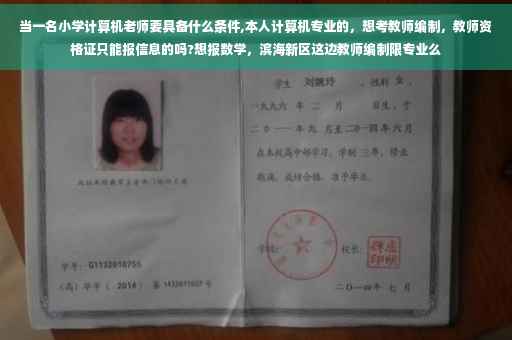 当一名小学计算机老师要具备什么条件,本人计算机专业的，想考教师编制，教师资
格证只能报信息的吗?想报数学，滨海新区这边教师编制限专业么
学生 刘婉玲 ，性别 女 ，
一九九六 年 二 月 日生，于
二〇一一年 九 月至二〇一四年 六 月
在本校高中部学习，学制 三年，修业
期满，成绩合格，准予毕业。
学校： 校长：
学号：G1132010755
（高）毕字（ 2014 ）第 1432011027 号
二〇一四年 七 月